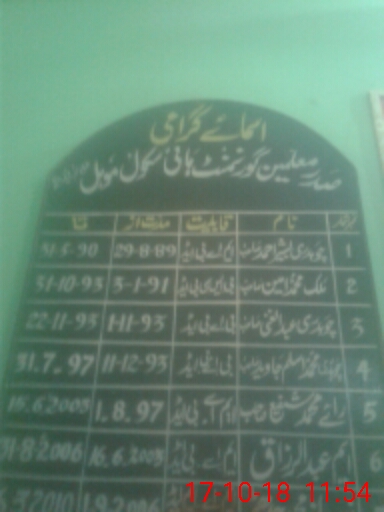 اسمائے گرامی
صدر معلمین گورنمنٹ ہائی سکول موہل
نمبر شمار نام قابلیت مدت از تا
1 چوہدری بشیر احمد صاحب ایم اے بی ایڈ 29-8-89 31-5-90
2 ملک محمد امین صاحب بی ایس سی بی ایڈ 3-1-91 31-10-93
3 چوہدری عبدالغنی صاحب بی اے بی ایڈ 1-11-93 22-11-93
4 چوہدری محمد اسلم جاوید صاحب بی اے بی ایڈ 11-12-93 31.7.97
5 رائے محمد شفیع صاحب ایم اے بی ایڈ 1.8.97 15.6.2005
6 ایم عبدالرزاق ایم اے بی ایڈ 16.6.2005 31-8-2006
17-10-18 11:54